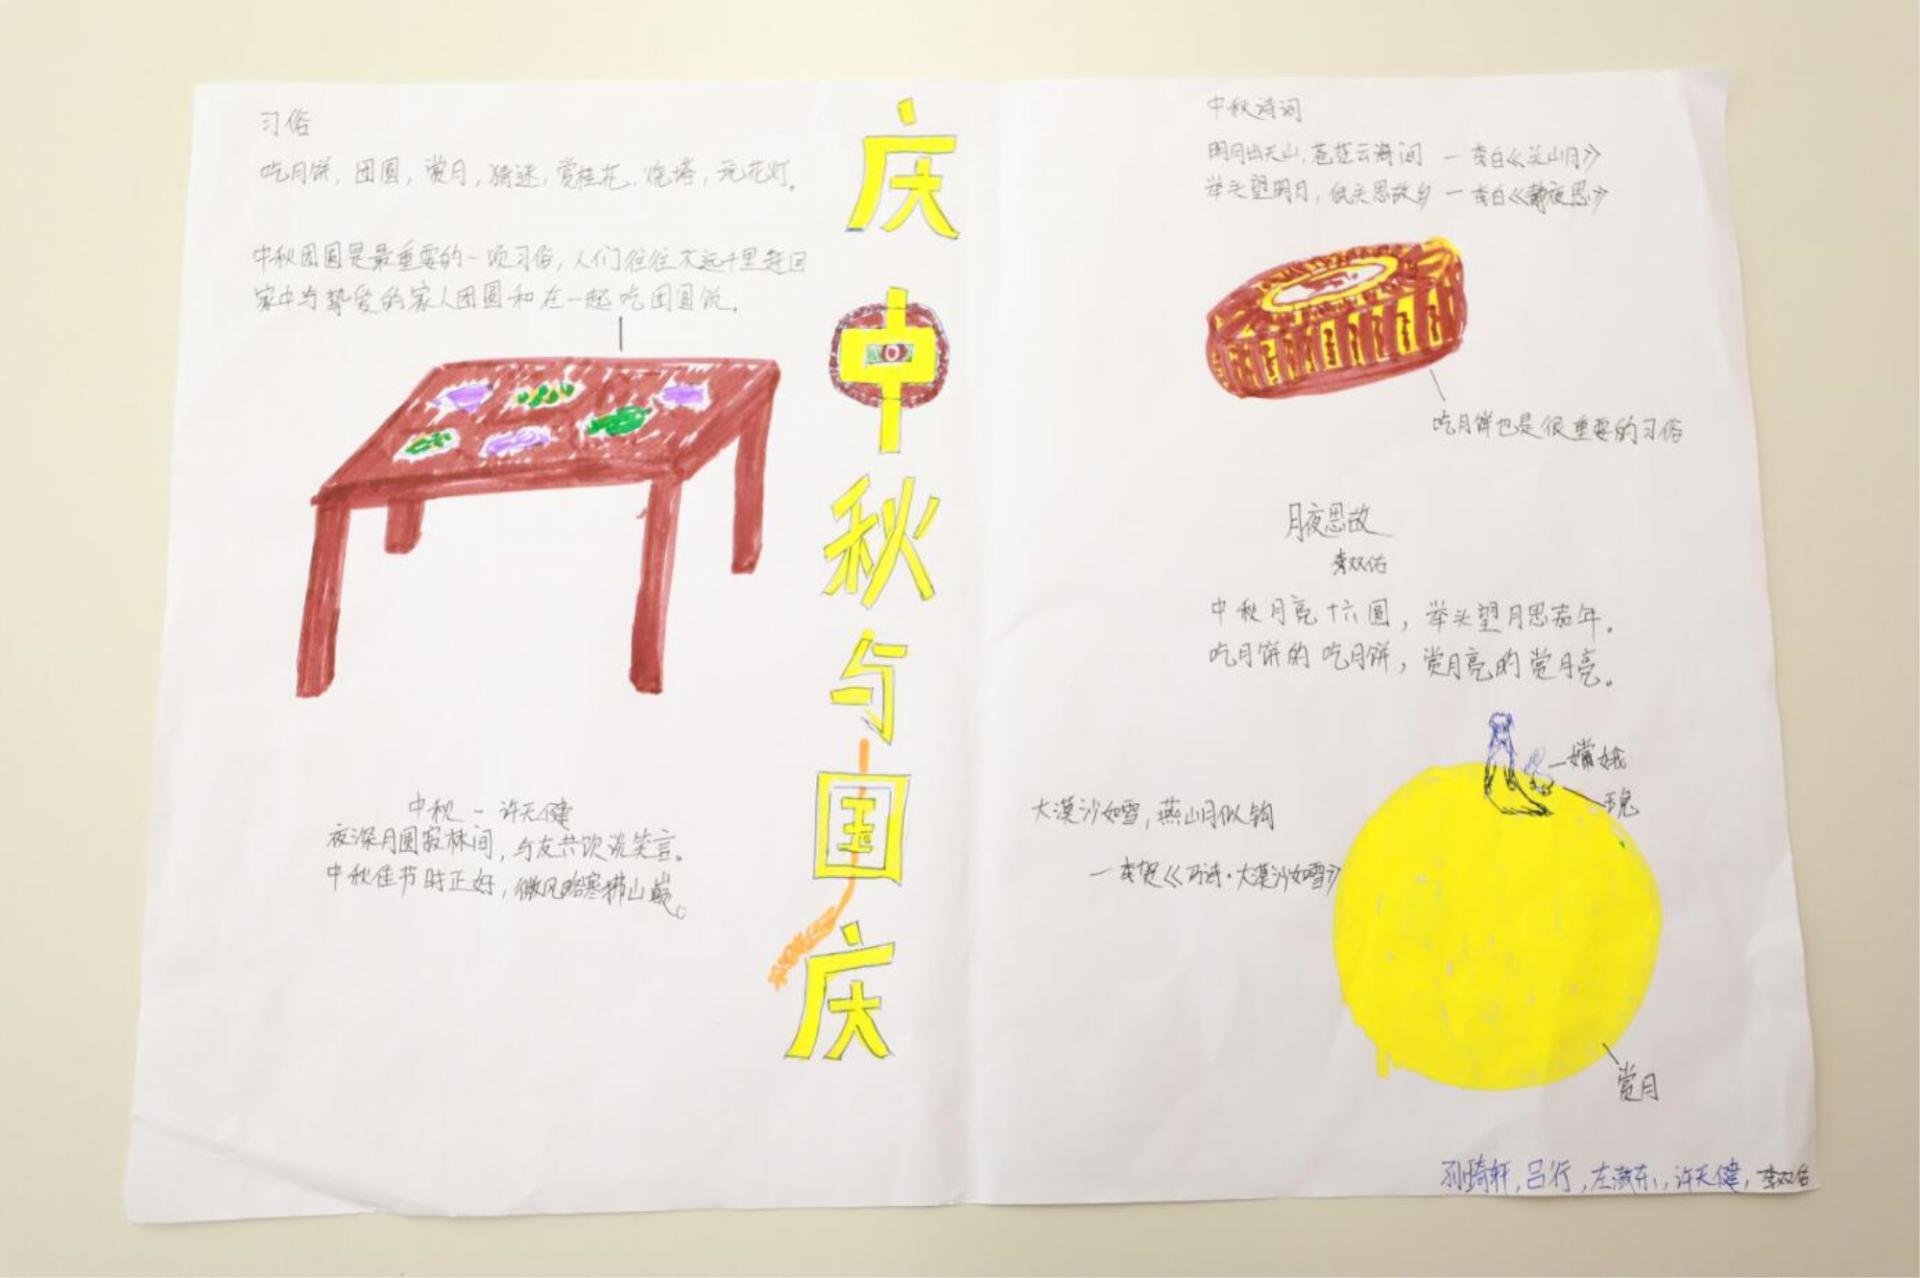 习俗
吃月饼，团圆，赏月，猜迷，赏桂花，烧塔，玩花灯。
中秋团圆是最重要的一项习俗，人们往往不远千里赶回
家中与挚爱的家人团圆和在一起吃团圆饭。
中秋 - 许天健
夜深月圆寂林间，与友共饮谈笑言。
中秋佳节时正好，微风略寒拂山巅。
庆中秋与国庆
中秋诗词
明月出天山，苍茫云海间 — 李白《关山月》
举头望明月，低头思故乡 — 李白《静夜思》
吃月饼也是很重要的习俗
月夜思故
李双佑
中秋月亮十六圆，举头望月思嘉年。
吃月饼的吃月饼，赏月亮的赏月亮。
嫦娥
玉兔
大漠沙如雪，燕山月似钩
— 李贺《马诗·大漠沙如雪》
赏月
孙琦轩，吕行，左，许天健，李双佑